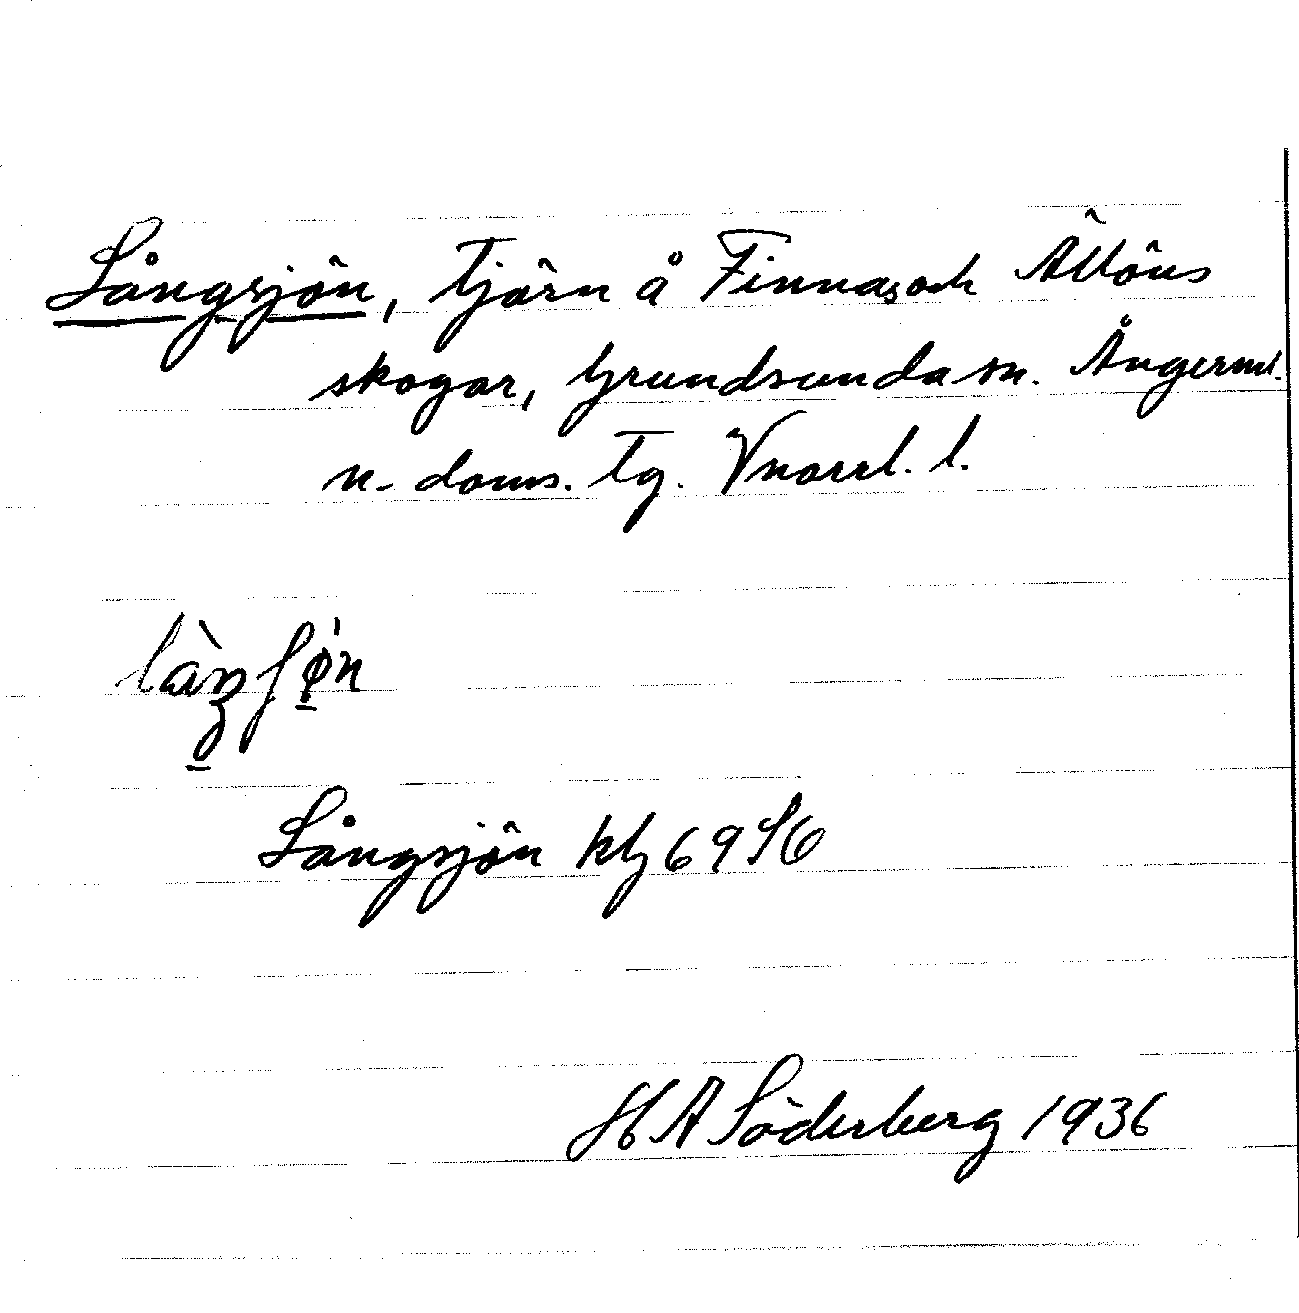 Långsjön, tjärn å Finnas och Ällöns
skogar, Grundsunda sn. Ångerml.
n. doms. tg. Vnorrl. l.
Långsjön kbl 69 S6
H A Söderberg 1936